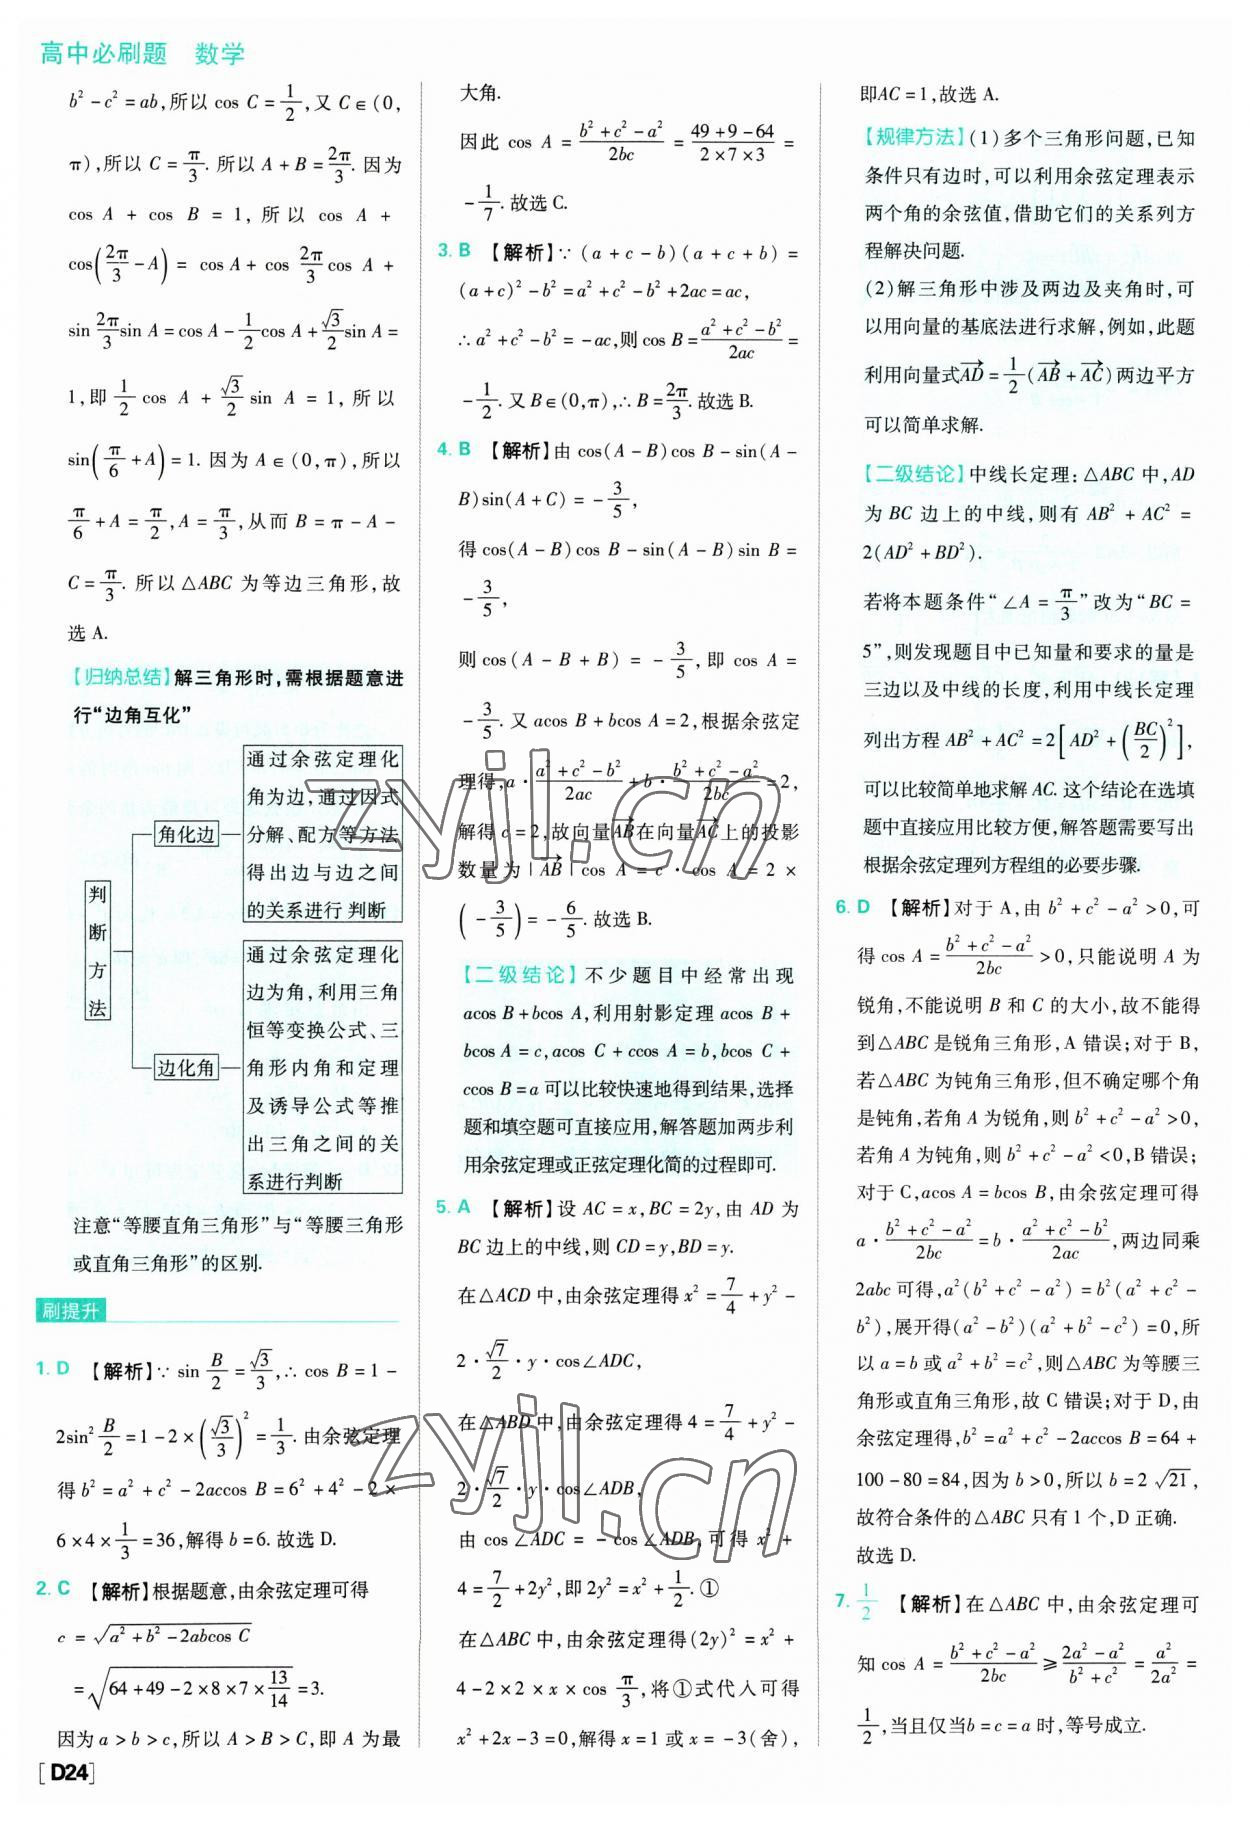 高中必刷题 数学
b² - c² = ab,所以 cos C = 1/2,又 C∈(0,
π),所以 C = π/3. 所以 A + B = 2π/3. 因为
cos A + cos B = 1, 所以 cos A +
cos(2π/3 - A) = cos A + cos 2π/3 cos A +
sin 2π/3 sin A = cos A - 1/2 cos A + √3/2 sin A =
1,即 1/2 cos A + √3/2 sin A = 1, 所以
sin(π/6 + A) = 1. 因为 A∈(0,π),所以
π/6 + A = π/2,A = π/3,从而 B = π - A -
C = π/3. 所以△ABC 为等边三角形,故
选 A.
【归纳总结】解三角形时,需根据题意进
行“边角互化”
判断方法
角化边
通过余弦定理化
角为边,通过因式
分解、配方等方法
得出边与边之间
的关系进行 判断
边化角
通过余弦定理化
边为角,利用三角
恒等变换公式、三
角形内角和定理
及诱导公式等推
出三角之间的关
系进行判断
注意“等腰直角三角形”与“等腰三角形
或直角三角形”的区别.
刷提升
1. D 【解析】∵ sin B/2 = √3/3,∴ cos B = 1 -
2sin² B/2 = 1 - 2 × (√3/3)² = 1/3. 由余弦定理
得 b² = a² + c² - 2accos B = 6² + 4² - 2 ×
6 × 4 × 1/3 = 36,解得 b = 6. 故选 D.
2. C 【解析】根据题意,由余弦定理可得
c = √(a² + b² - 2abcos C)
= √(64 + 49 - 2 × 8 × 7 × 13/14) = 3.
因为 a > b > c,所以 A > B > C,即 A 为最
[D24]
大角.
因此 cos A = (b² + c² - a²)/2bc = (49 + 9 - 64)/(2 × 7 × 3) =
- 1/7. 故选 C.
3. B 【解析】∵ (a + c - b)(a + c + b) =
(a + c)² - b² = a² + c² - b² + 2ac = ac,
∴ a² + c² - b² = - ac,则 cos B = (a² + c² - b²)/2ac =
- 1/2. 又 B∈(0,π),∴ B = 2π/3. 故选 B.
4. B 【解析】由 cos(A - B)cos B - sin(A -
B)sin(A + C) = - 3/5,
得 cos(A - B)cos B - sin(A - B)sin B =
- 3/5,
则 cos(A - B + B) = - 3/5,即 cos A =
- 3/5. 又 acos B + bcos A = 2,根据余弦定
理得,a · (a² + c² - b²)/2ac + b · (b² + c² - a²)/2bc = 2,
解得 c = 2,故向量AB在向量AC上的投影
数量为 |AB|cos A = c · cos A = 2 ×
(- 3/5) = - 6/5. 故选 B.
【二级结论】不少题目中经常出现
acos B + bcos A,利用射影定理 acos B +
bcos A = c,acos C + ccos A = b,bcos C +
ccos B = a 可以比较快速地得到结果,选择
题和填空题可直接应用,解答题加两步利
用余弦定理或正弦定理化简的过程即可.
5. A 【解析】设 AC = x,BC = 2y,由 AD 为
BC 边上的中线,则 CD = y,BD = y.
在△ACD 中,由余弦定理得 x² = 7/4 + y² -
2 · √7/2 · y · cos∠ADC,
在△ABD 中,由余弦定理得 4 = 7/4 + y² -
2 · √7/2 · y · cos∠ADB,
由 cos∠ADC = - cos∠ADB,可得 x² +
4 = 7/2 + 2y²,即 2y² = x² + 1/2. ①
在△ABC 中,由余弦定理得(2y)² = x² +
4 - 2 × 2 × x × cos π/3,将①式代入可得
x² + 2x - 3 = 0,解得 x = 1 或 x = - 3(舍),
即AC = 1,故选 A.
【规律方法】(1)多个三角形问题,已知
条件只有边时,可以利用余弦定理表示
两个角的余弦值,借助它们的关系列方
程解决问题.
(2)解三角形中涉及两边及夹角时,可
以用向量的基底法进行求解,例如,此题
利用向量式AD = 1/2(AB + AC)两边平方
可以简单求解.
【二级结论】中线长定理:△ABC 中,AD
为 BC 边上的中线,则有 AB² + AC² =
2(AD² + BD²).
若将本题条件“∠A = π/3”改为“BC =
5”,则发现题目中已知量和要求的量是
三边以及中线的长度,利用中线长定理
列出方程 AB² + AC² = 2[AD² + (BC/2)²],
可以比较简单地求解 AC. 这个结论在选填
题中直接应用比较方便,解答题需要写出
根据余弦定理列方程组的必要步骤.
6. D 【解析】对于 A,由 b² + c² - a² > 0,可
得 cos A = (b² + c² - a²)/2bc > 0,只能说明 A 为
锐角,不能说明 B 和 C 的大小,故不能得
到△ABC 是锐角三角形,A 错误;对于 B,
若△ABC 为钝角三角形,但不确定哪个角
是钝角,若角 A 为锐角,则 b² + c² - a² > 0,
若角 A 为钝角,则 b² + c² - a² < 0,B 错误;
对于 C,acos A = bcos B,由余弦定理可得
a · (b² + c² - a²)/2bc = b · (a² + c² - b²)/2ac,两边同乘
2abc 可得,a²(b² + c² - a²) = b²(a² + c² -
b²),展开得(a² - b²)(a² + b² - c²) = 0,所
以 a = b 或 a² + b² = c²,则△ABC 为等腰三
角形或直角三角形,故 C 错误;对于 D,由
余弦定理得,b² = a² + c² - 2accos B = 64 +
100 - 80 = 84,因为 b > 0,所以 b = 2√21,
故符合条件的△ABC 只有 1 个,D 正确.
故选 D.
7. 1/2 【解析】在△ABC 中,由余弦定理可
知 cos A = (b² + c² - a²)/2bc ≥ (2a² - a²)/(b² + c²) = a²/2a² =
1/2,当且仅当 b = c = a 时,等号成立.
zyjl.cn
zyjl.cn